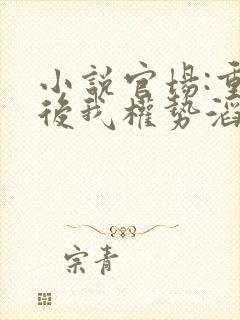 小說官場:重
後我權勢滔
宗青